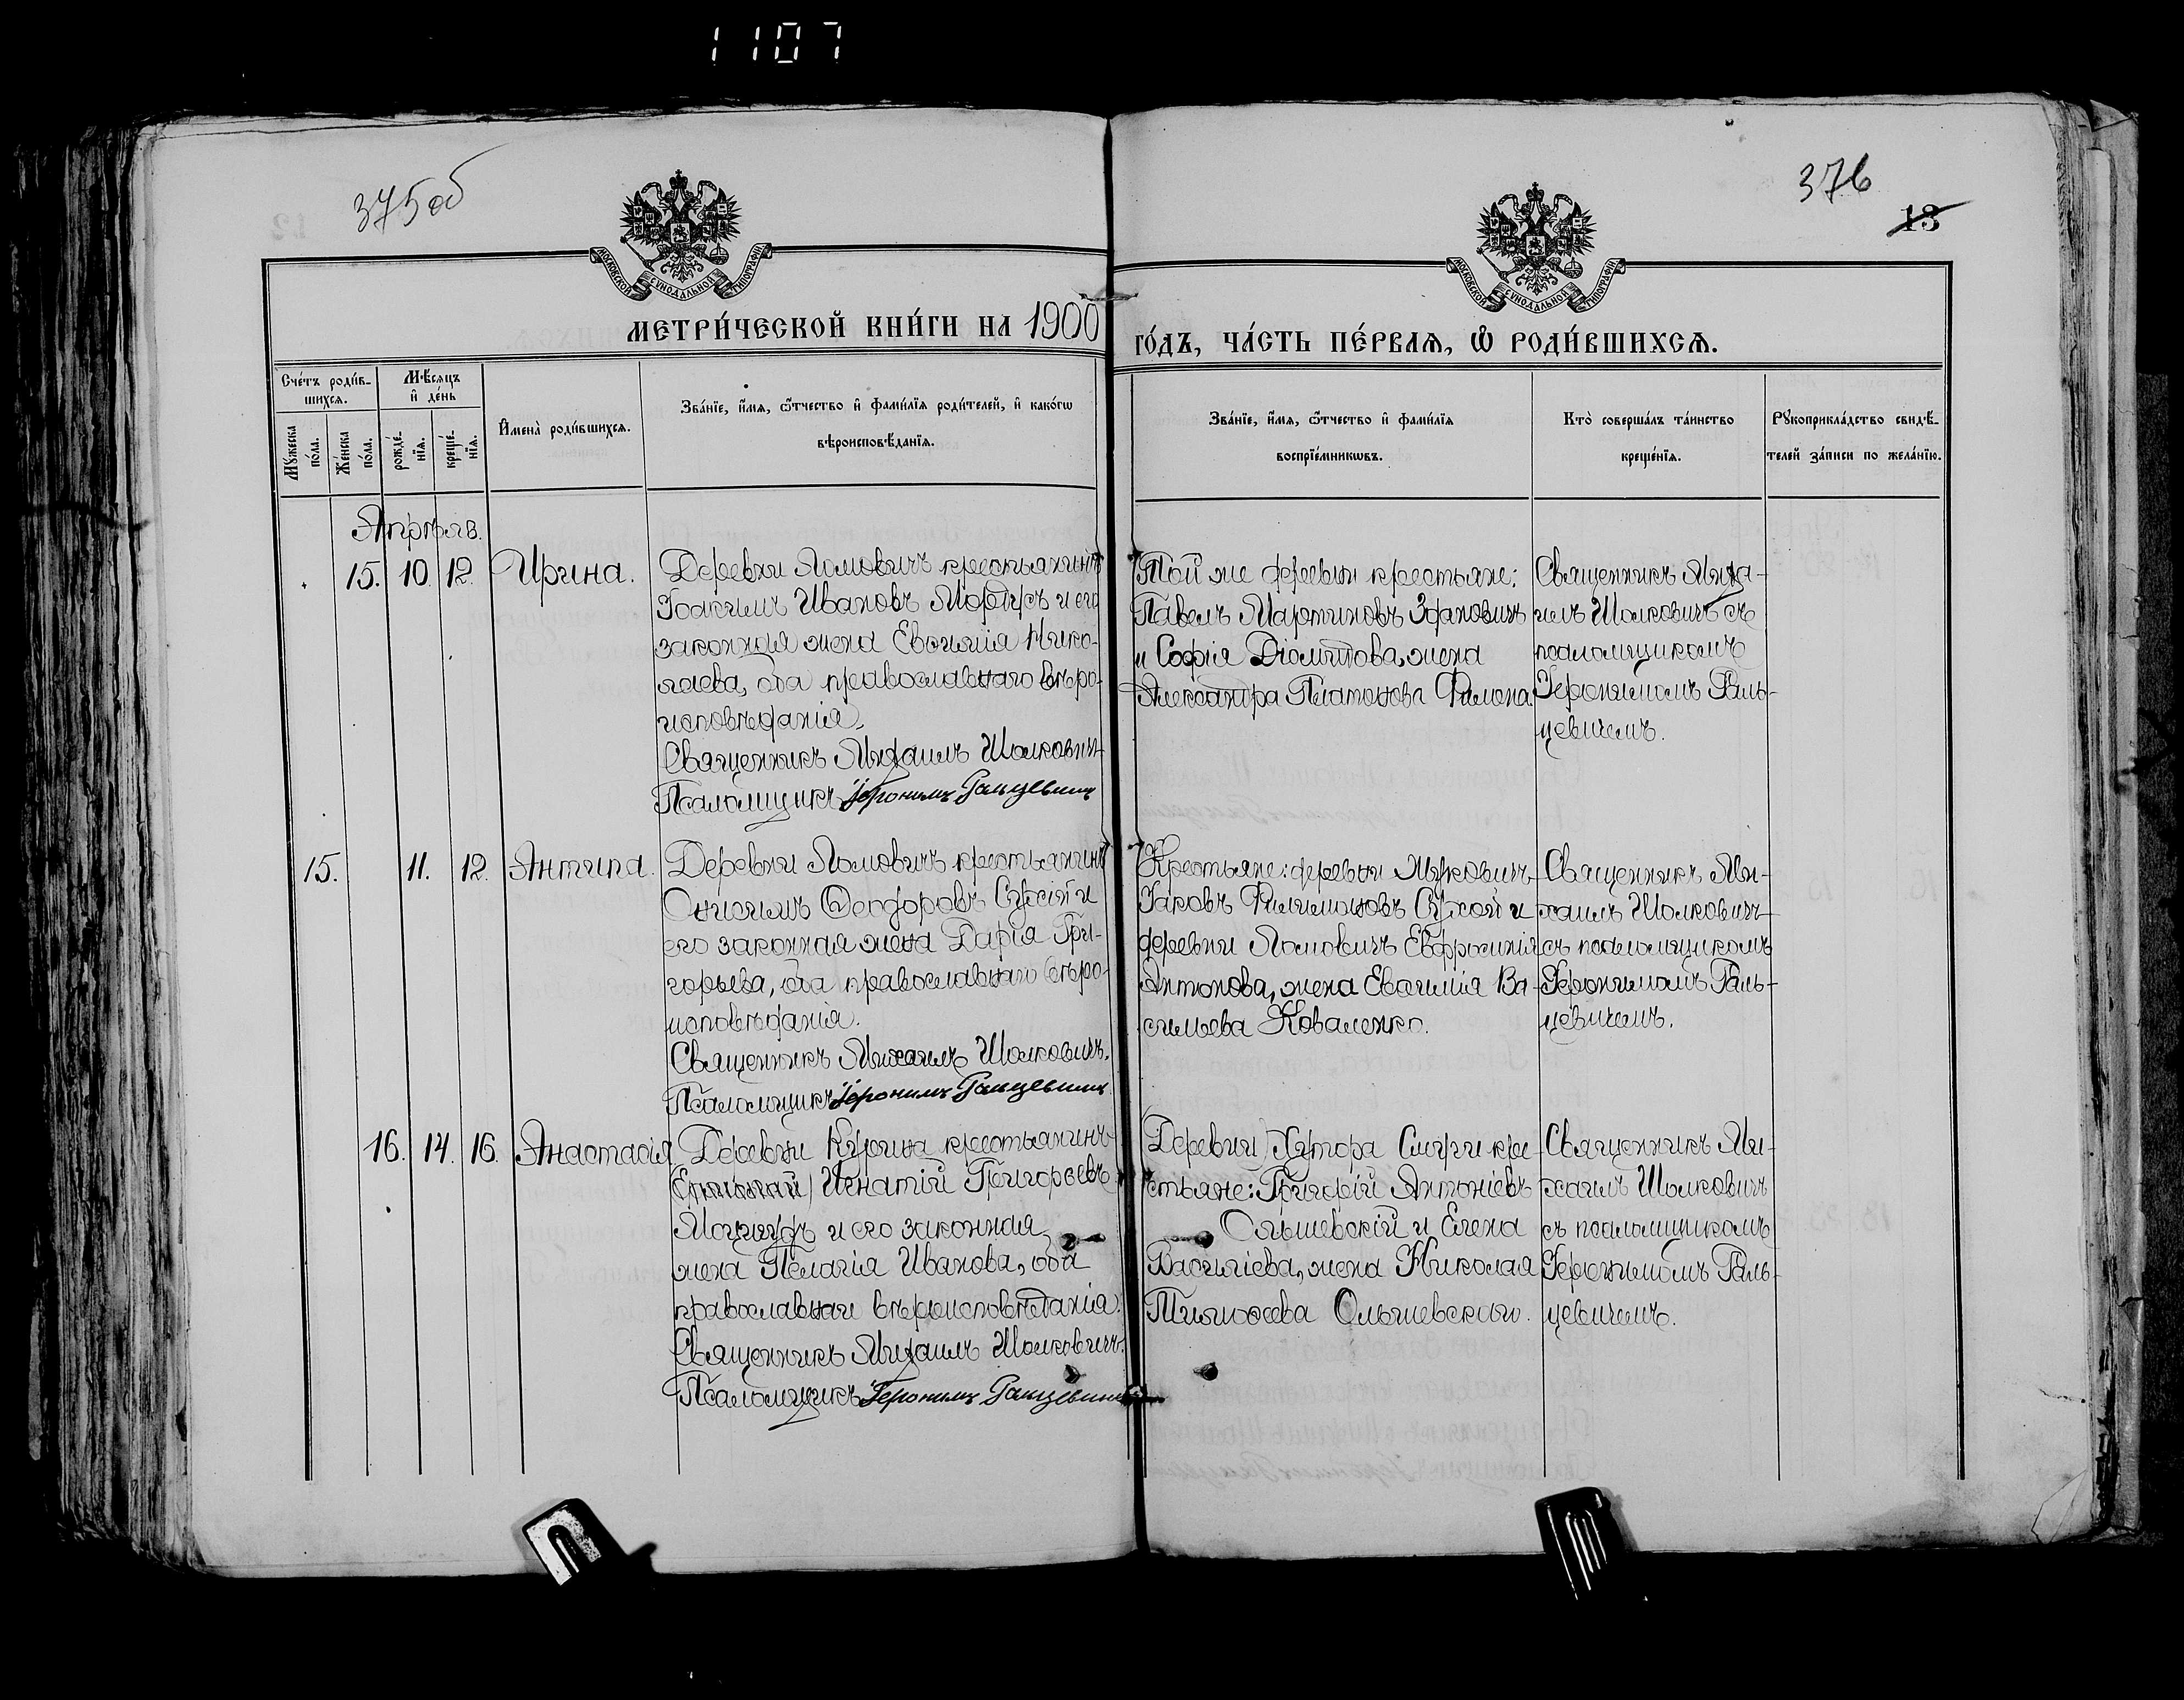 1107
375об
376
13
МОСКОВСКОЙ СѴНОДАЛЬНОЙ ТИПОГРАФІИ
МОСКОВСКОЙ СѴНОДАЛЬНОЙ ТИПОГРАФІИ
МЕТРИ́ЧЕСКОЙ КНИ́ГИ НА 1900
ГО́ДЪ, ЧА́СТЬ ПЕ́РВАЯ, Ѡ҆ РОДИ́ВШИХСѦ.
Сче́тъ роди́в-
шихся.
Мѣ́сяцъ
и҆ де́нь
Мꙋ́жеска
по́ла.
Же́нска
по́ла.
рожде́-
нїя.
креще́-
нїя.
И҆мена̀ роди́вшихся.
Зва́нїе, и҆́мя, ѻ҆́тчество и҆ фами́лїя роди́телей, и҆ како́гѡ
вѣроисповѣ́данїя.
Зва́нїе, и҆́мя, ѻ҆́тчество и҆ фами́лїя
воспрїе́мникѡвъ.
Кто̀ соверша́лъ та́инство
креще́нїя.
Рꙋкоприкла́дство свидѣ́-
телей за́писи по жела́нїю.
Апрѣля.
15. 10. 12. Ирина.
Деревни Ломовичъ крестьянинъ
Іоакимъ Ивановъ и его
законная жена Евѳимія Нико-
лаева, оба православнаго вѣро-
исповѣданія.
Священникъ Михаилъ Шолковичъ
Псаломщикъ Іеронимъ Гальцевичъ
Той же деревни крестьяне:
Павелъ Мартиновъ Зданович
и Софія Діомидова, жена
Александра Платонова
Священникъ Миха-
илъ Шолковичъ съ
псаломщикомъ
Іеронимомъ Галь-
цевичемъ.
15. 11. 12. Антипа.
Деревни Ломовичъ крестьянинъ
Онисимъ Ѳеодоровъ Сухой и
его законная жена Дарія Гри-
горьева, оба православнаго вѣро-
исповѣданія.
Священникъ Михаилъ Шолковичъ.
Псаломщикъ Іеронимъ Гальцевичъ
Крестьяне: деревни
Іаковъ Филимоновъ Сухой и
деревни Ломовичъ Евфросинія
Антонова, жена Евѳимія Ва-
сильева Коваленко.
Священникъ Ми-
хаилъ Шолковичъ
съ псаломщикомъ
Іеронимомъ Галь-
цевичемъ.
16. 14. 16. Анастасія
Деревни Курина крестьянинъ
Игнатій Григорьевъ
и его законная
жена Пелагія Иванова, оба
православнаго вѣроисповѣданія.
Священникъ Михаилъ Шолковичъ.
Псаломщикъ Іеронимъ Гальцевичъ
Деревни Хутора кре-
стьяне: Григорій Антоніевъ
Ольшевскій и Елена
Василіева, жена Николая
Тимоѳеева Ольшевскаго.
Священникъ Ми-
хаилъ Шолковичъ
съ псаломщикомъ
Іеронимомъ Галь-
цевичемъ.